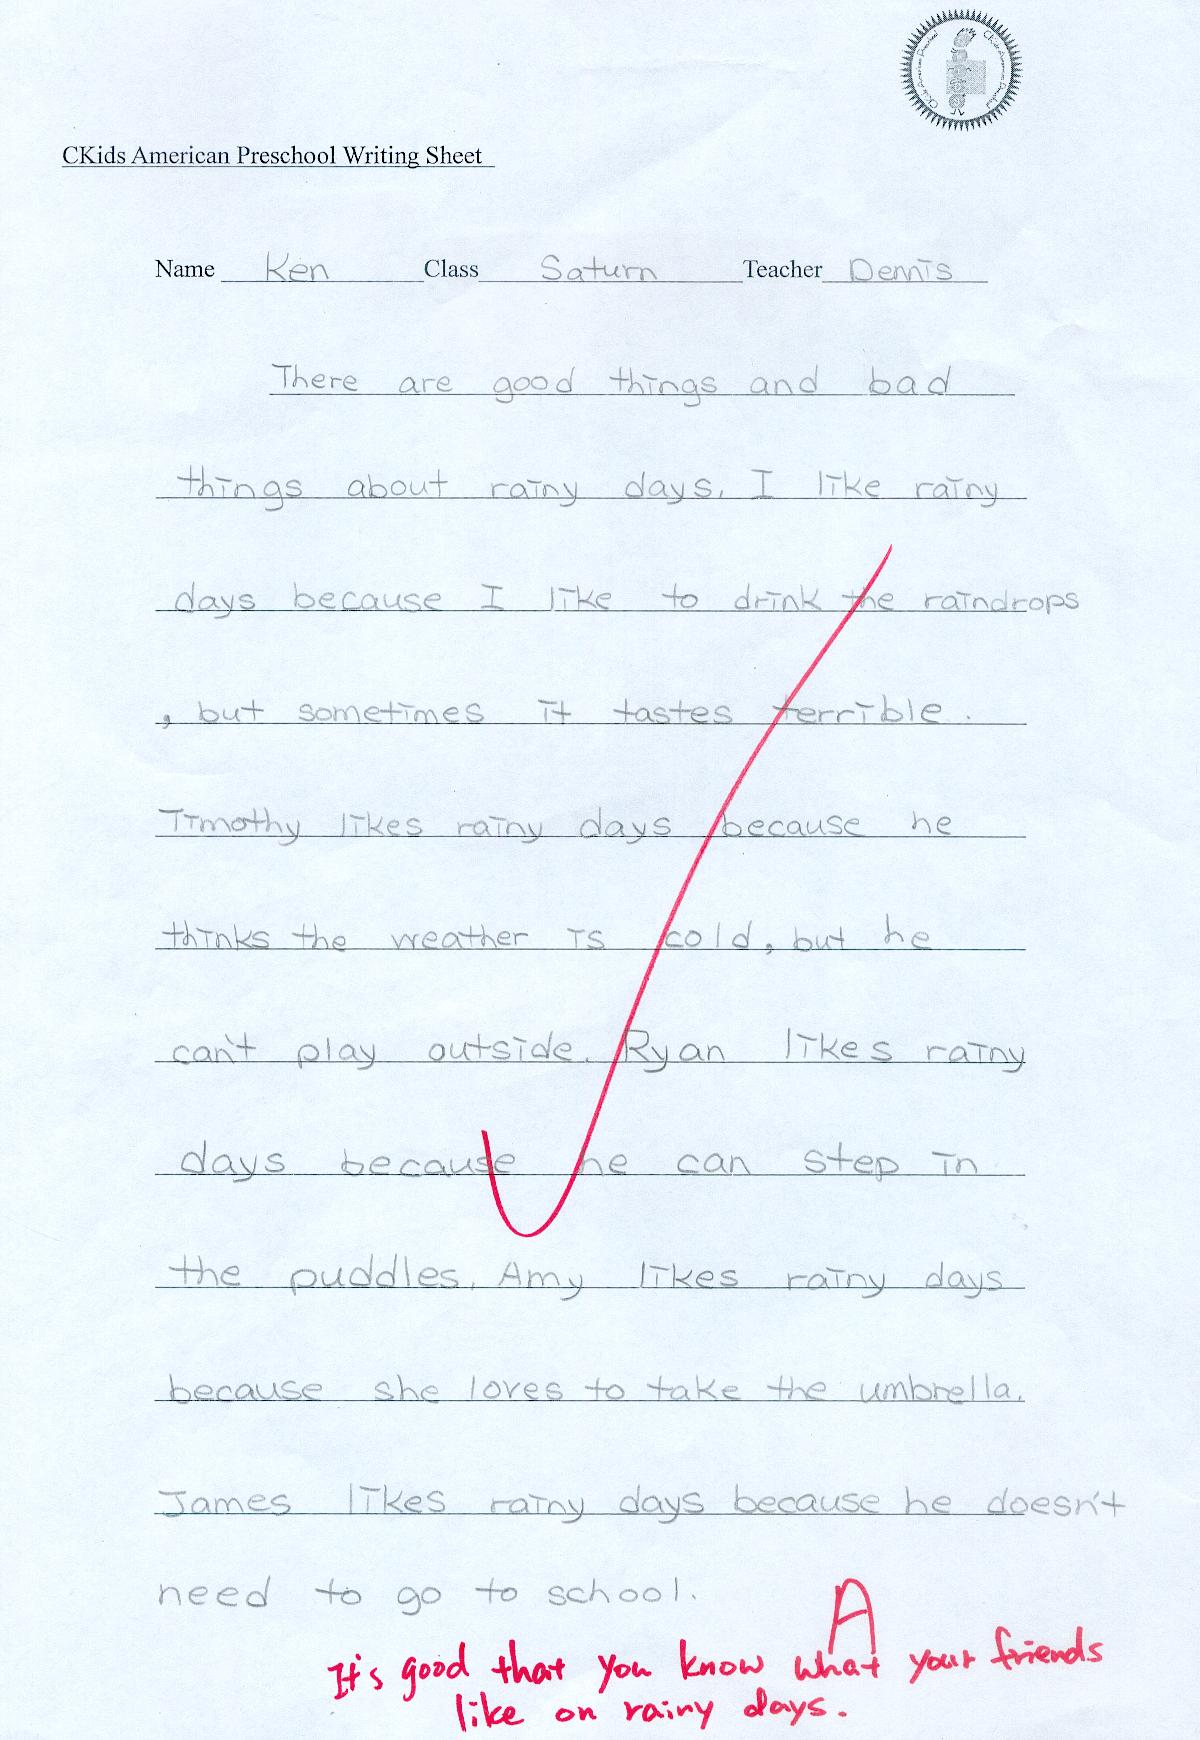 CKids American Preschool
CKids American Preschool
CKids American Preschool Writing Sheet
Name Ken Class Saturn Teacher Dennis
There are good things and bad
things about rainy days. I like rainy
days because I like to drink the raindrops
, but sometimes it tastes terrible.
Timothy likes rainy days because he
thinks the weather is cold, but he
can't play outside. Ryan likes rainy
days because he can step in
the puddles. Amy likes rainy days
because she loves to take the umbrella.
James likes rainy days because he doesn't
need to go to school.
A
It's good that you know what your friends
like on rainy days.